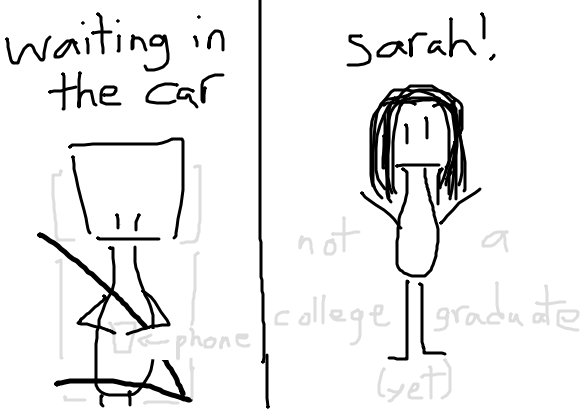 waiting in
the car
← phone
sarah!
not a
college graduate
(yet)